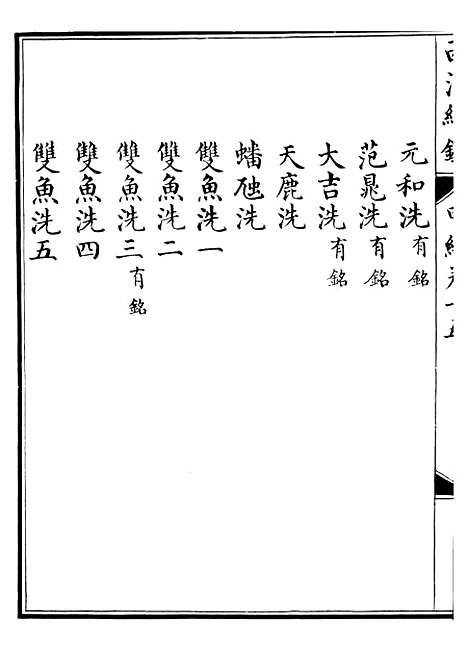 元和洗有銘
范晁洗有銘
大吉洗有銘
天鹿洗
蟠虺洗
雙魚洗一
雙魚洗二
雙魚洗三有銘
雙魚洗四
雙魚洗五